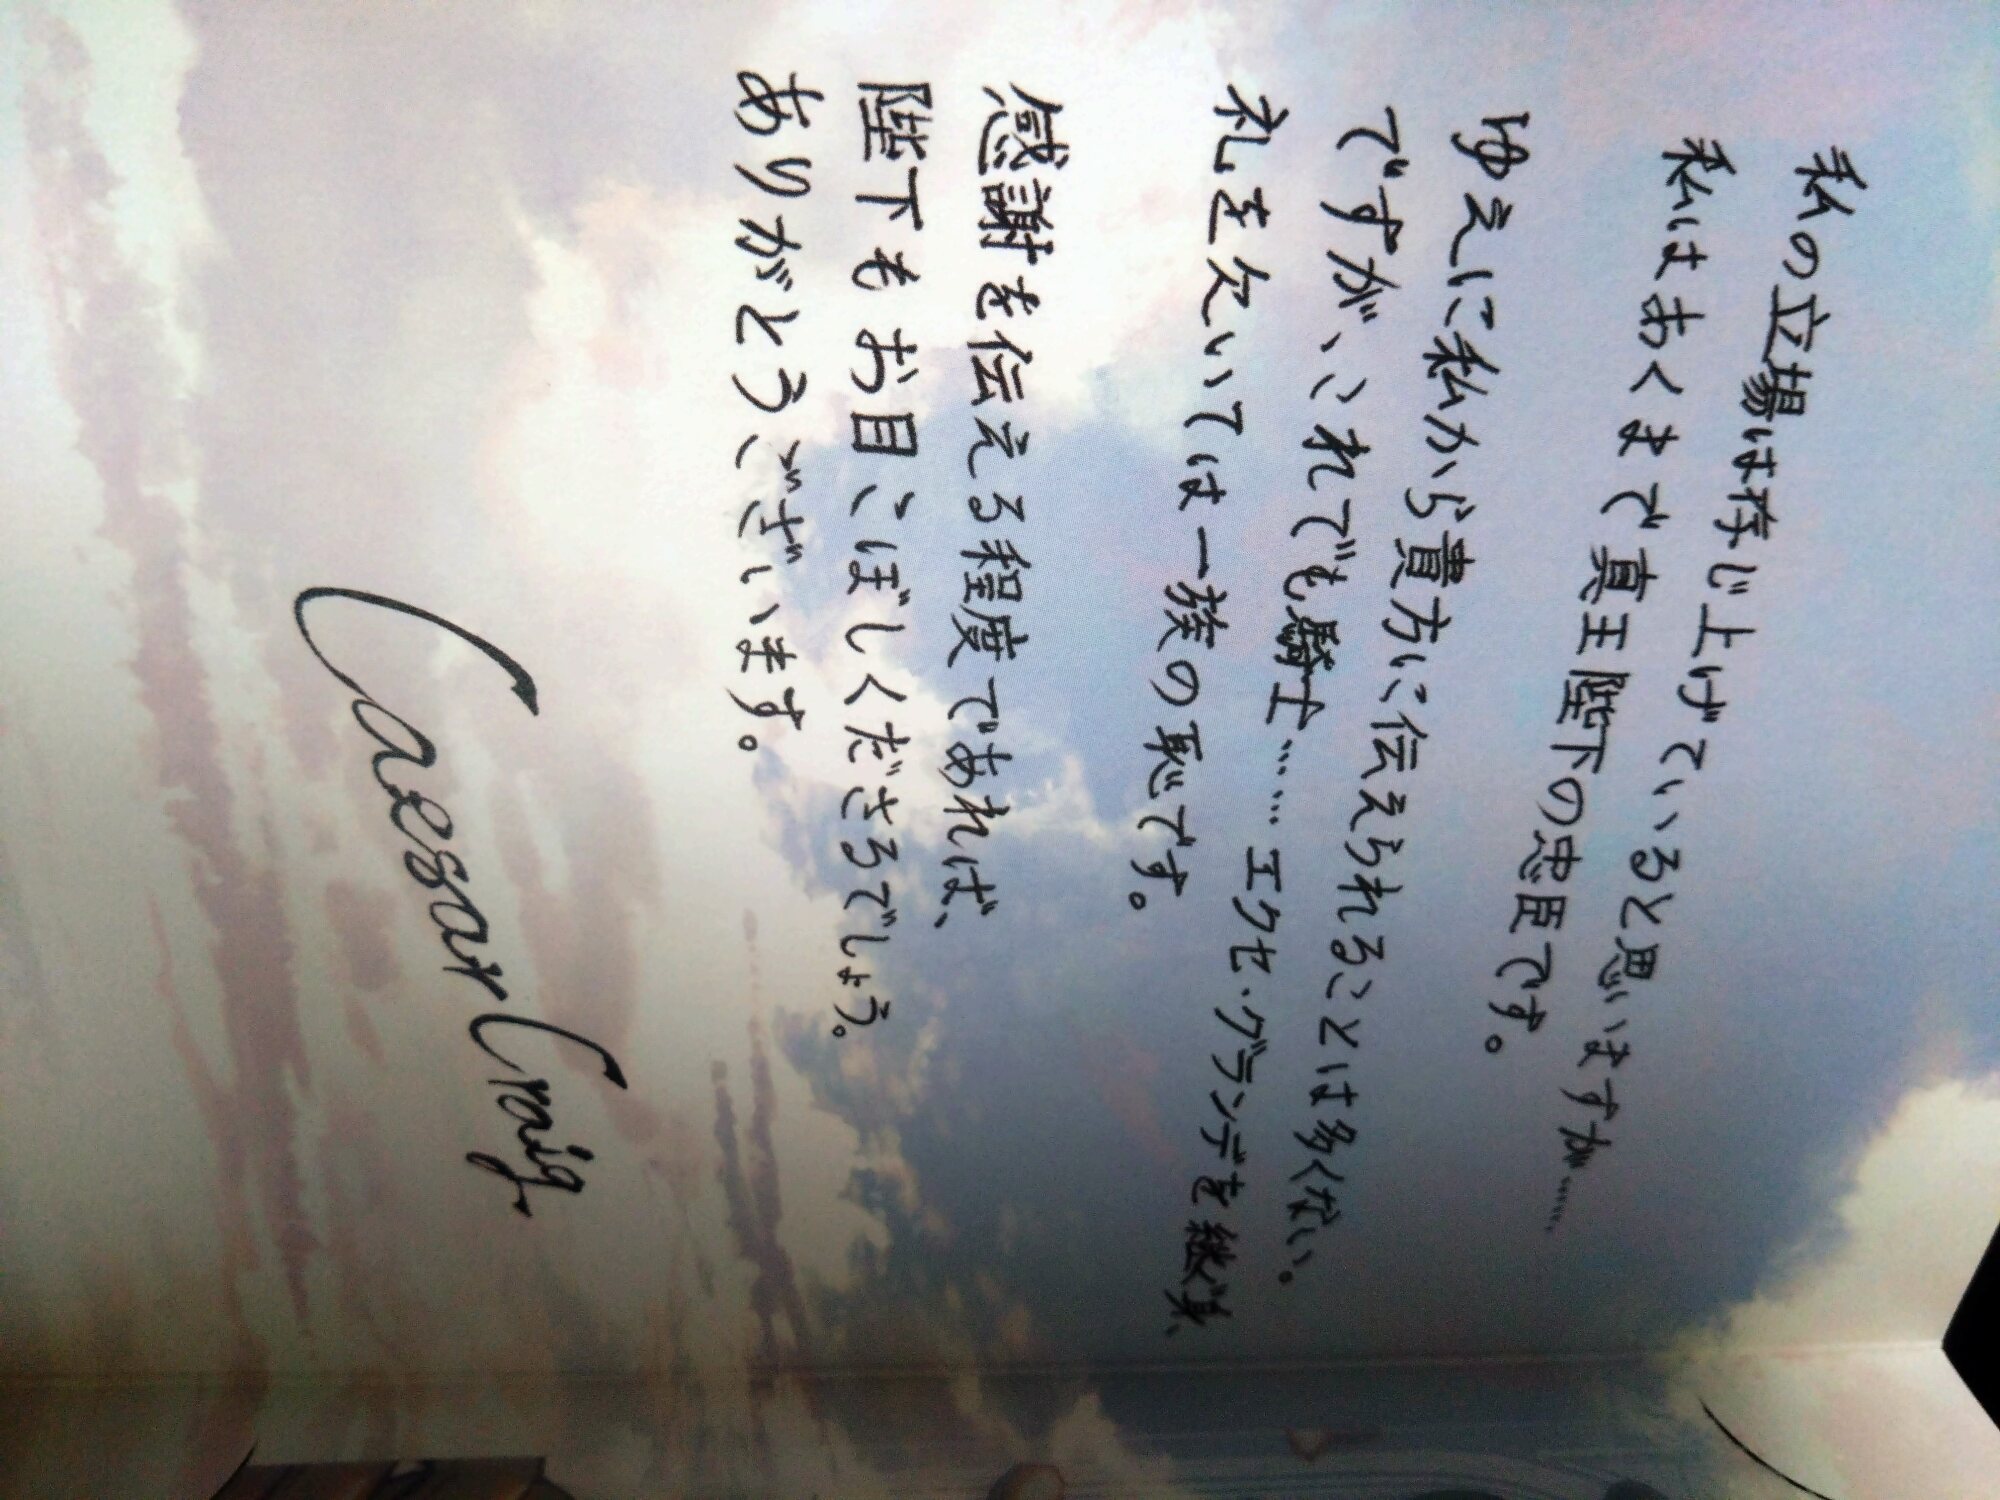 私の立場は存じ上げていると思いますが……
私はあくまで真王陛下の忠臣です。
ゆえに私から貴方に伝えられることは多くない。
ですが、これでも騎士……エクセ・グランデを継ぐ身、
礼を欠いては一族の恥です。
感謝を伝える程度であれば、
陛下もお目こぼしくださるでしょう。
ありがとうございます。
Caesar Craig